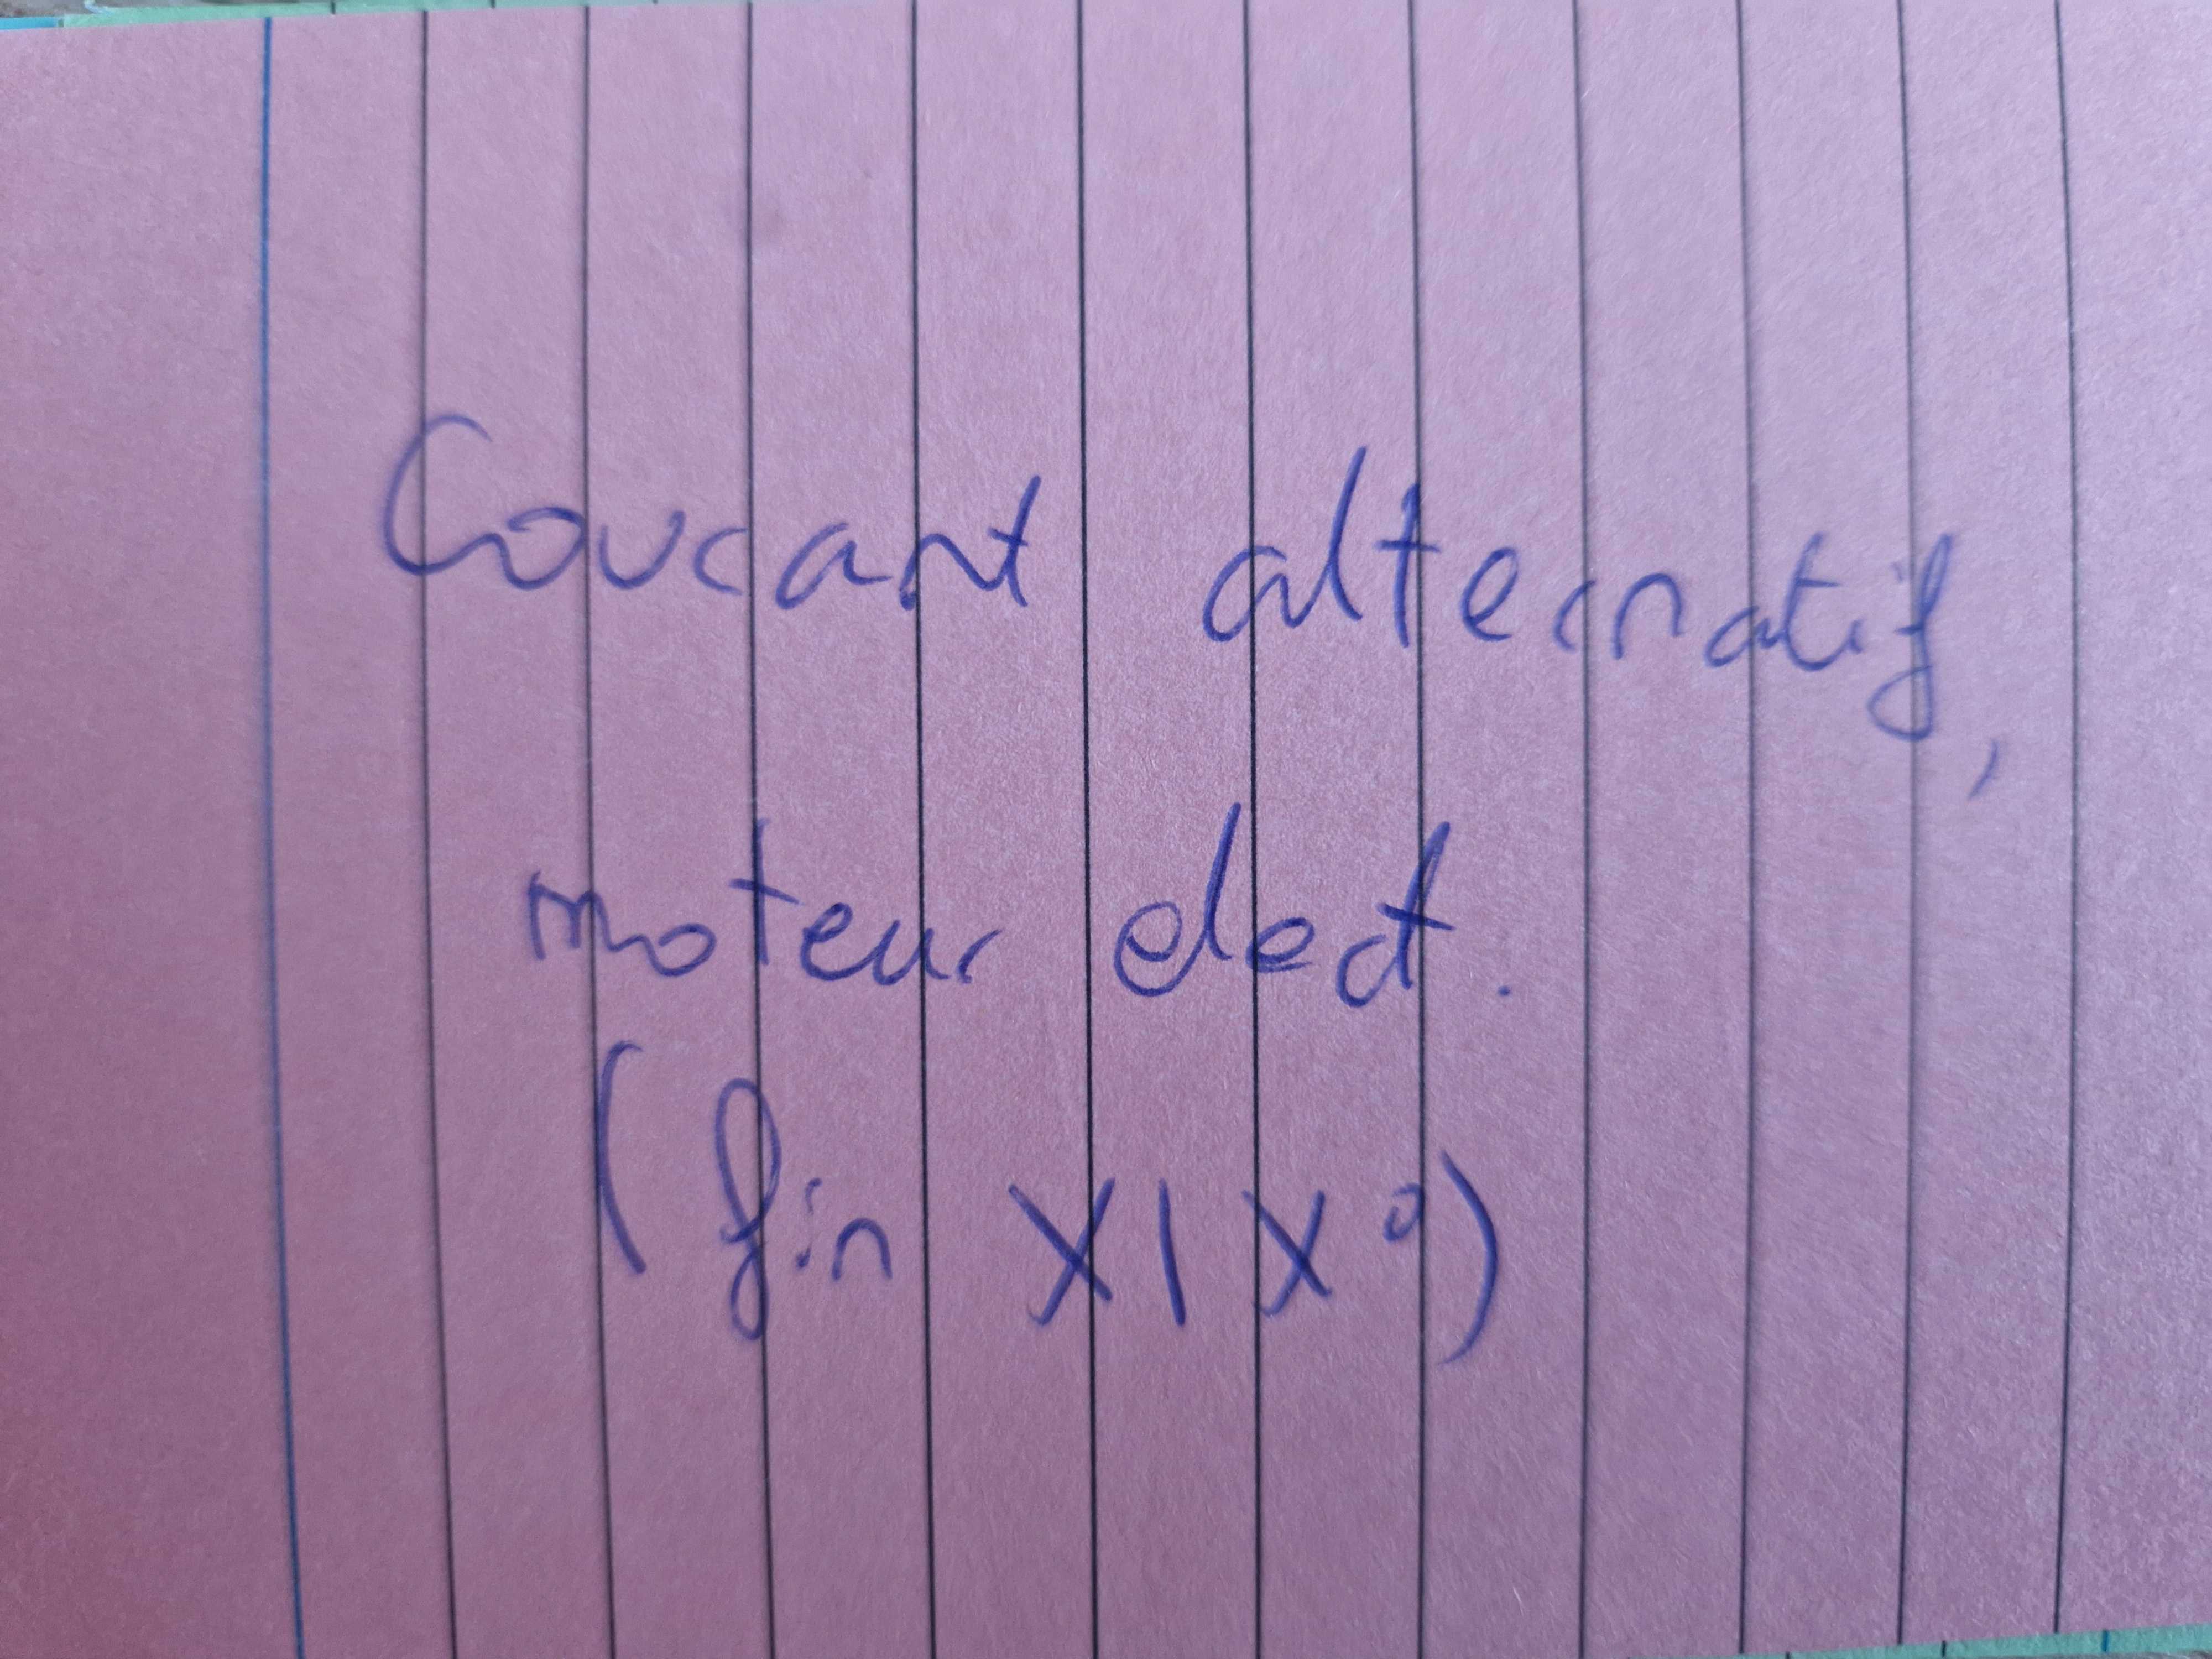 Courant alternatif,
moteur elect.
(fin XIX°)